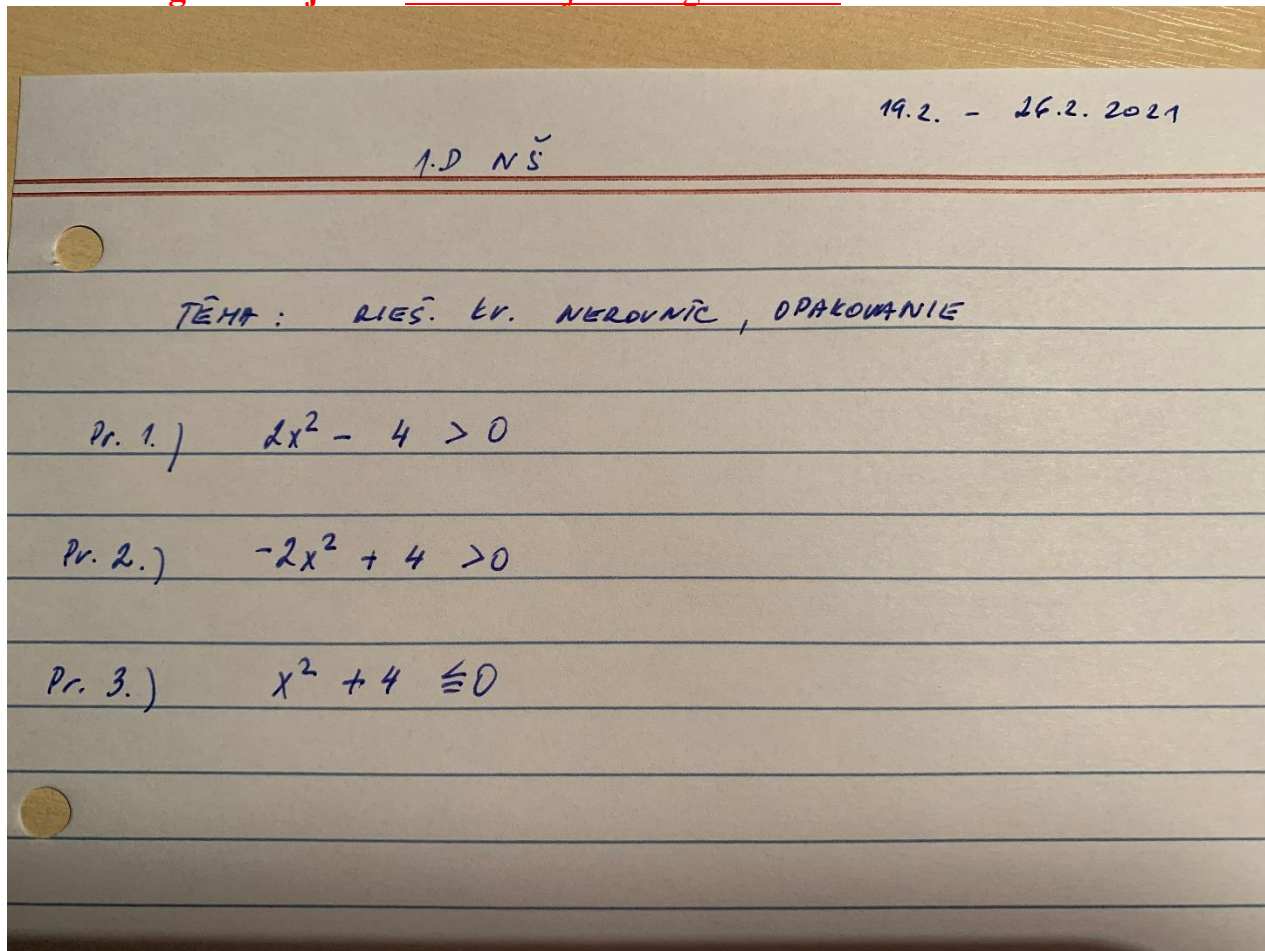 19.2. - 26.2. 2021
1.D NŠ
TÉMA: RIEŠ. kv. NEROVNÍC, OPAKOVANIE
Pr. 1.) 2x² - 4 > 0
Pr. 2.) -2x² + 4 >0
Pr. 3.) x² + 4 ≦0